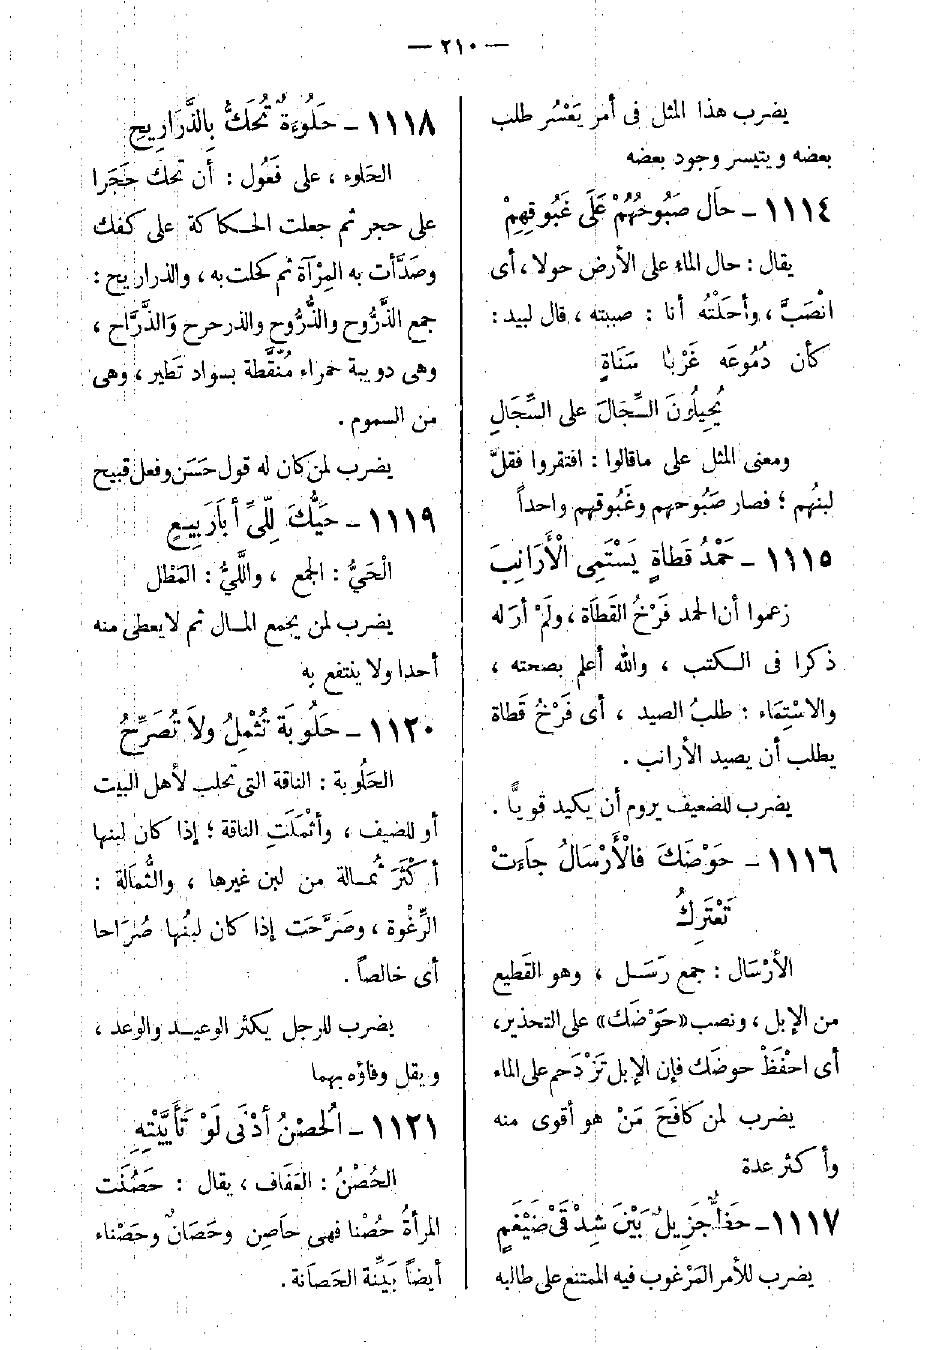 — ٢١٠ —
يضرب هذا المثل فى أمر يَعْسُر طلب
بعضه ويتيسر وجود بعضه
١١١٤ – حَال صَبُوحُهُمْ عَلَى غَبُوقِهِمْ
يقال : حال الماء على الأرض حولا ، أى
انْصَبَّ ، وأحَلْتُه أنا : صببته ، قال لبيد :
كأن دُمُوعَه غَرْبَا سَنَاةٍ
يُحِيلُونَ السِّجَالَ على السِّجَالِ
ومعنى المثل على ماقالوا : افتقروا فقلَّ
لبنُهم ؛ فصار صَبُوحهم وغَبُوقهم واحداً
١١١٥ – حَمْدُ قَطاةٍ يَسْتَمِى الْأَرَانِبَ
زعموا أن الحمد فَرْخُ القَطَاة ، ولَمْ أرَ له
ذكرا فى الكتب ، والله أعلم بصحته ،
والاسْتِمَاء : طلبُ الصيد ، أى فَرْخُ قَطاة
يطلب أن يصيد الأرانب .
يضرب للضعيف يروم أن يكيد قويًّا .
١١١٦ – حَوْضَكَ فالْأَرْسَالُ جاَءتْ
تَعْتَرِكُ
الأرْسَال : جمع رَسَل ، وهو القَطيع
من الإبل ، ونصب «حَوْضَك» على التحذير،
أى احْفَظْ حوضَك فإن الإبل تَزْدَحم على الماء
يضرب لمن كافَحَ مَنْ هو أقوى منه
وأكثر عدة
١١١٧ – حَظٌّ جَزِيلٌ بَيْنَ شِدْقَىْ ضَيْغَمٍ
يضرب للأمر المَرْغوب فيه الممتنع على طالبه
١١١٨ – حَلُوءَةٌ تُحَكُّ بِالذَّرَارِيحِ
الحَلوء ، على فَعُول : أن تحك حَجَرا
على حجر ثم جعلت الحكاكة على كفك
وصَدَّأت به المِرْآة ثم كحلت به ، والذراريح :
جمع الذَّرُّوح والذُّرُّوح والذرحرح وَالذَّرَّاح ،
وهى دويبة حمراء مُنَقَّطة بسواد تَطير ، وهى
من السموم .
يضرب لمن كان له قول حَسَن وفعل قبيح
١١١٩ – حَيُّكَ لِلَىٍّ أبَارَبِيعٍ
الْحَيُّ : الجمع ، واللَّيُّ : المَطْل
يضرب لمن يجمع المال ثم لايعطى منه
أحدا ولا ينتفع به
١١٢٠ – حَلُوبَة تُثْمِلُ ولاَ تُصَرِّحُ
الحَلُوبة : الناقة التى تحلب لأهل البيت
أو للضيف ، وأثْمَلَتِ الناقة ؛ إذا كان لبنها
أكْثَرَ ثُمالة من لبن غيرها ، والثُّمَالة :
الرِّغْوة ، وصَرَّحَت إذا كان لبنُها صُرَاحا
أى خالصاً .
يضرب للرجل يكثر الوعيد والوعد ،
ويقل وفاؤه بهما
١١٢١ – الْحُصْنُ أدْنَى لَوْ تَأَيَّيْتِهِ
الحُصْنُ : العَفَاف ، يقال : حَصُنَت
المرأةُ حُصْنا فهى حاَصِن وحَصَانٌ وحَصْناء
أيضاً بَيِّنة الحَصاَنة .